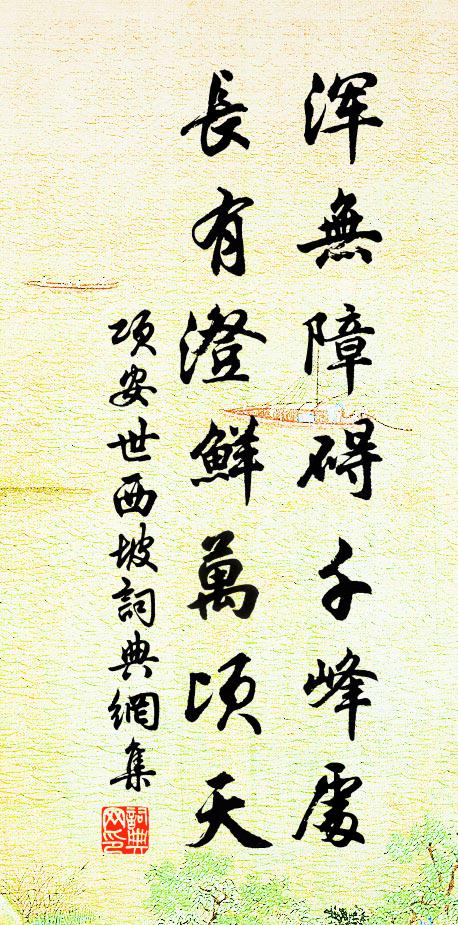 浑無障碍千峰處
長有澄鮮萬頃天
项安世西坡詞典網集
詞典網印